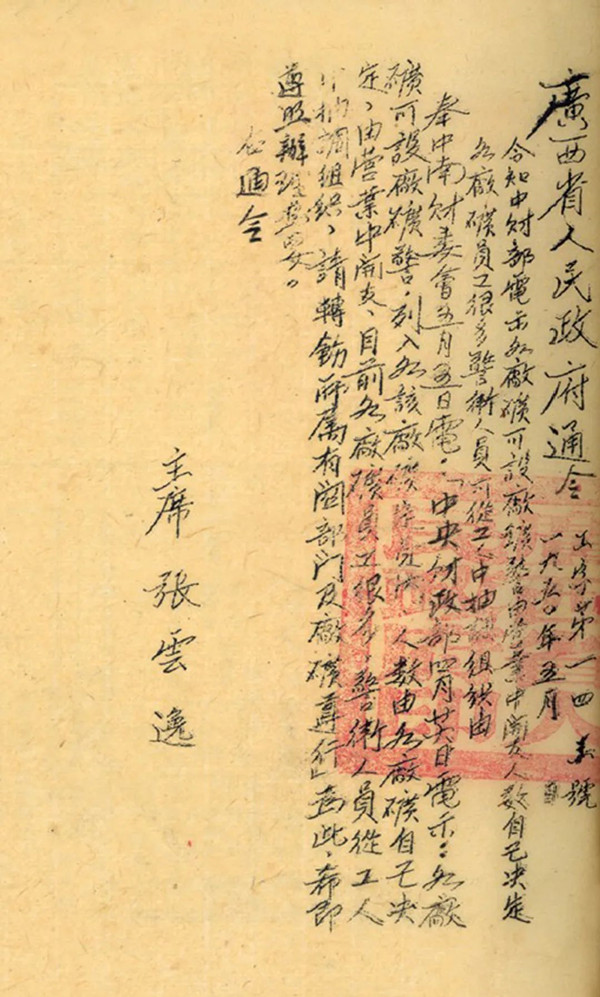 廣西省人民政府通令
字第一四 號
一九五〇年五月 日
令知中財部電示各廠礦可設廠礦警由營業中開支人數自己决定
各廠礦員工很多警衛人員可從工人中抽調組織由
奉中南財委會五月五日電：「中央財政部四月廿 日電示：各廠
礦可設廠礦警，列入各該廠礦 人數由各廠礦自己决
定，由營業中開支、目前各廠礦員工很多，警衛人員從工人
中抽調組織、請轉飭所属有関部门及廠礦尊行」為此，希即
遵照辦理為要。
此通令
主席 張雲逸